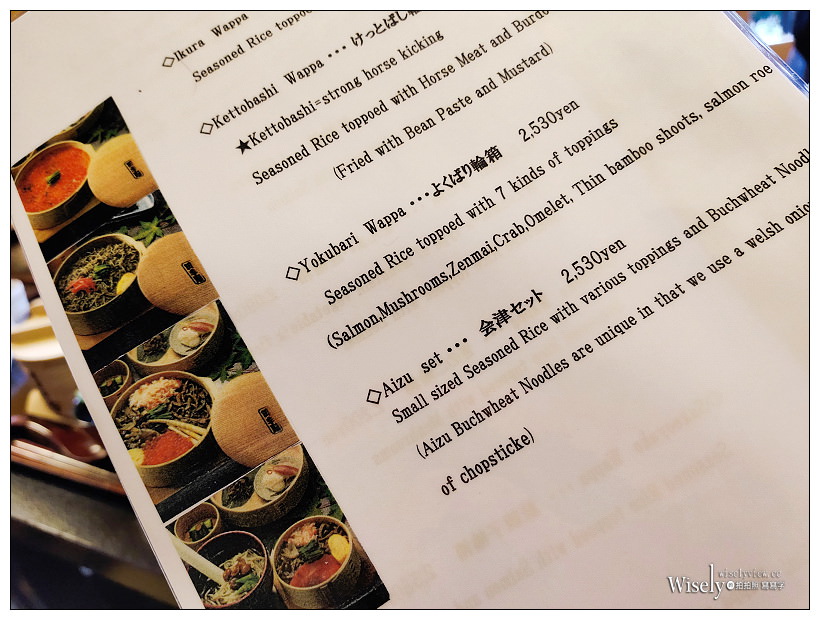 ◇Ikura Wappa
Seasoned Rice toppo
◇Kettobashi Wappa・・・けっとばし輪
★Kettobashi=strong horse kicking
Seasoned Rice toppoed with Horse Meat and Burdo
(Fried with Bean Paste and Mustard)
◇Yokubari Wappa・・・よくばり輪箱 2,530yen
Seasoned Rice toppoed with 7 kinds of toppings
(Salmon,Mushrooms,Zenmai,Crab,Omelet, Thin bamboo shoots, salmon roe
◇Aizu set・・・ 会津セット 2,530yen
Small sized Seasoned Rice with various toppings and Buchwheat Noodl
(Aizu Buchwheat Noodles are unique in that we use a welsh onio
of chopsticke)
wiselyview.cc
Wisely
拍拍照 寫寫字